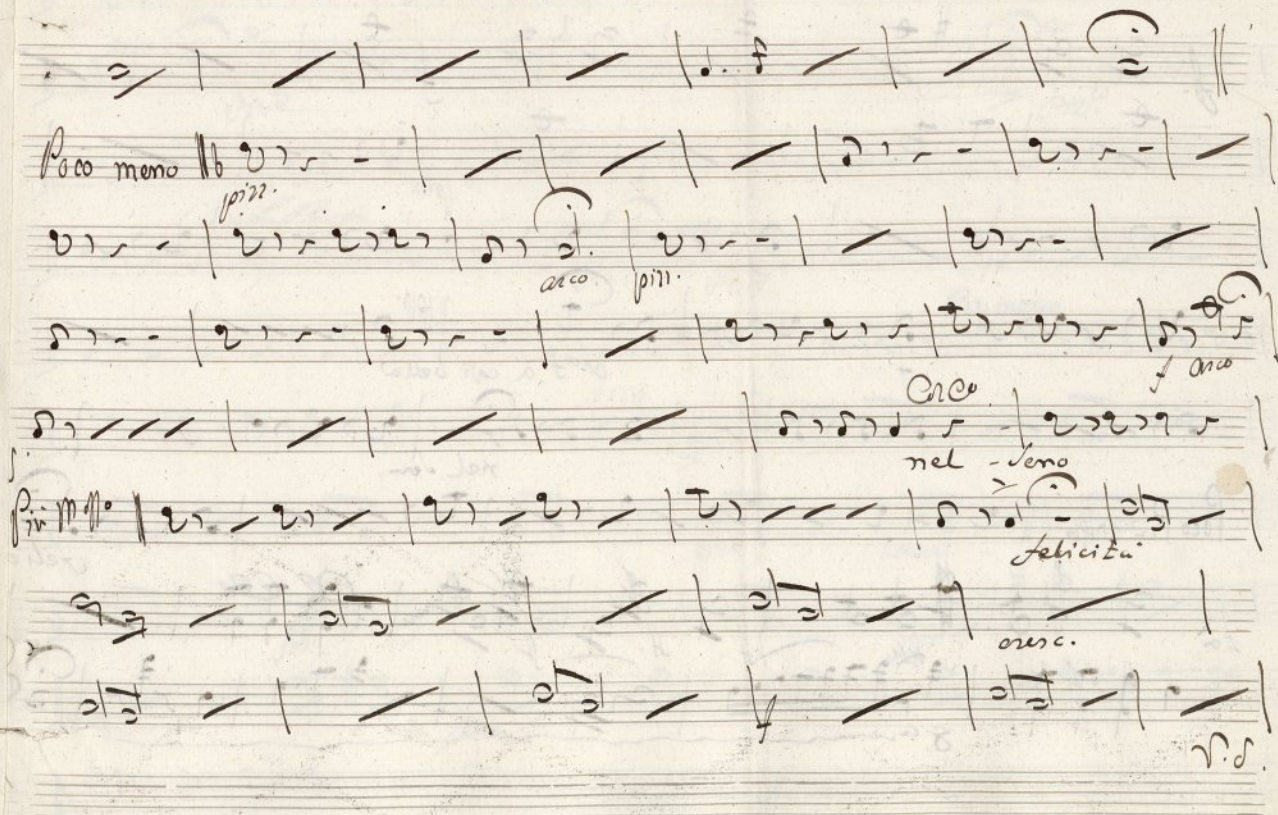 Poco meno
pizz.
arco pizz.
f arco
arco
nel - seno
Più mosso
felicità
cresc.
f
V.S.